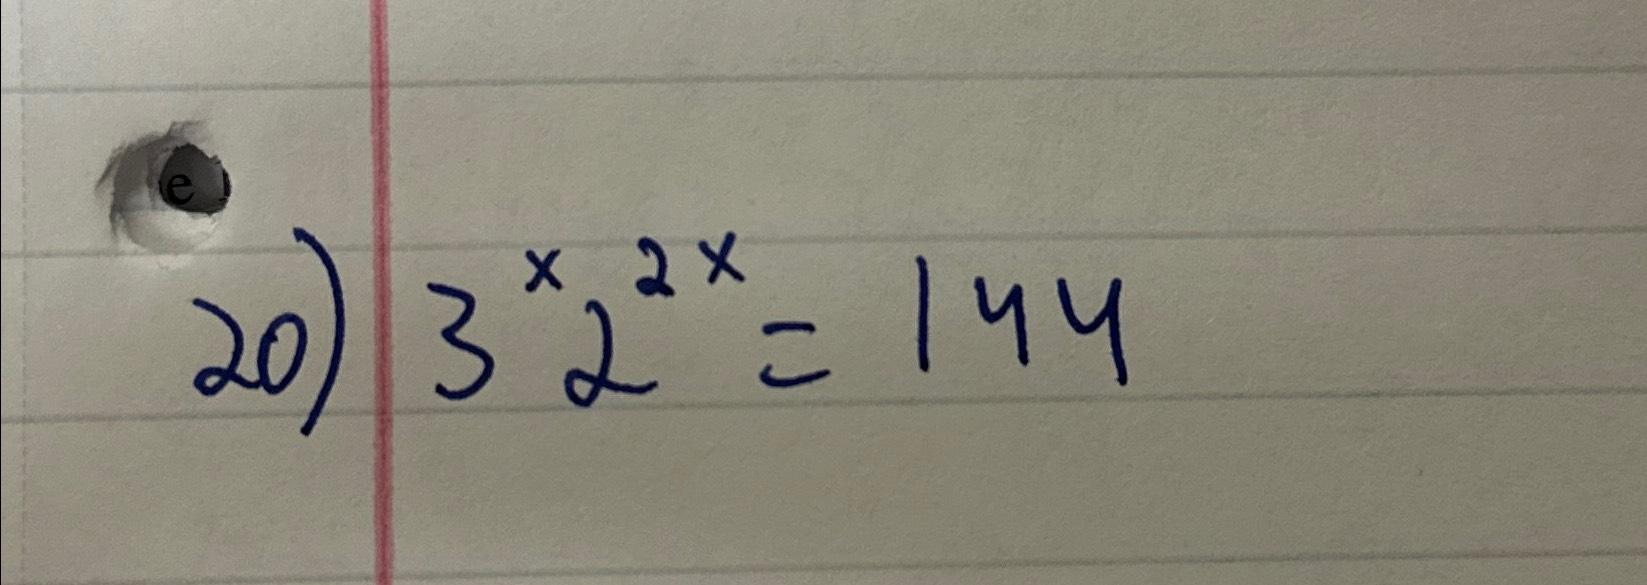 e
20) 3^x 2^2x = 144